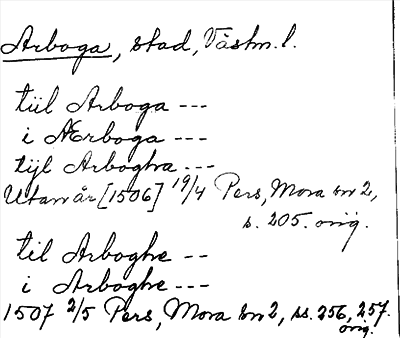 Arboga, stad, Västm. l.
tiil Arboga ---
i Ærboga ---
tijl Arbogha ---
Utan år [1506] 19/4 Pers, Mora nr 2,
s. 205. orig.
til Arboghe --
i Arboghe ---
1507 2/5 Pers, Mora nr 2, ss. 256, 257.
orig.